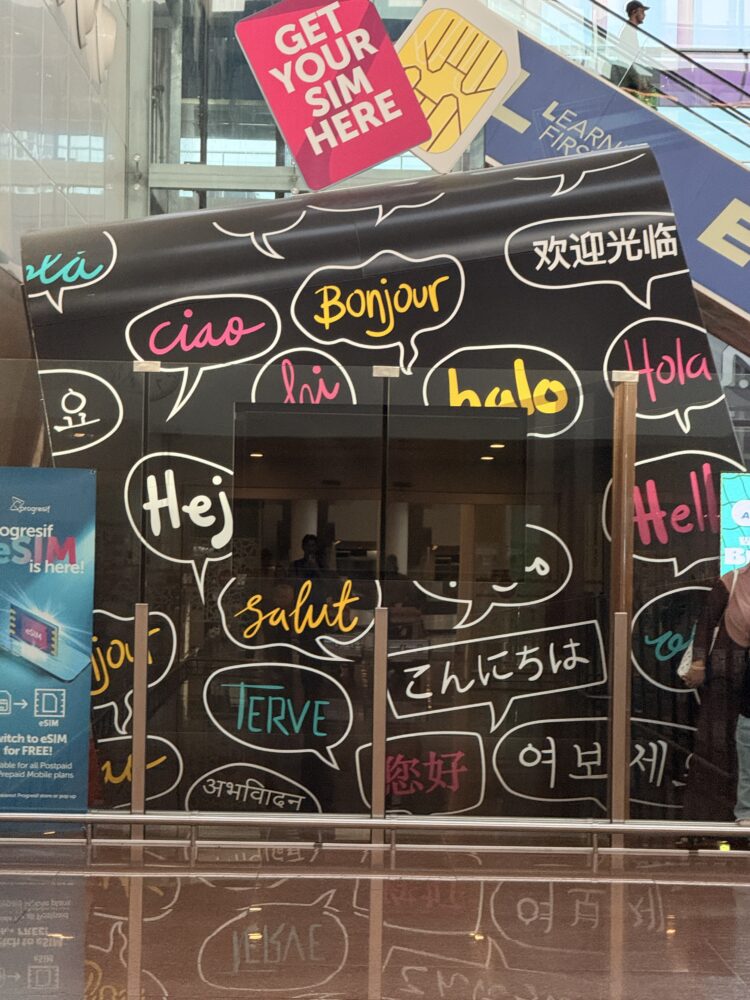 GET
YOUR
SIM
HERE
LEARN
FIRST
欢迎光临
Bonjour
ciao
hi
halo
Hola
요
Hej
Hell
progresif
ogresif
eSIM
is here!
eSIM
eSIM
witch to eSIM
for FREE!
able for all Postpaid
Prepaid Mobile plans
salut
jour
こんにちは
TERVE
您好
여보세
अभिवादन